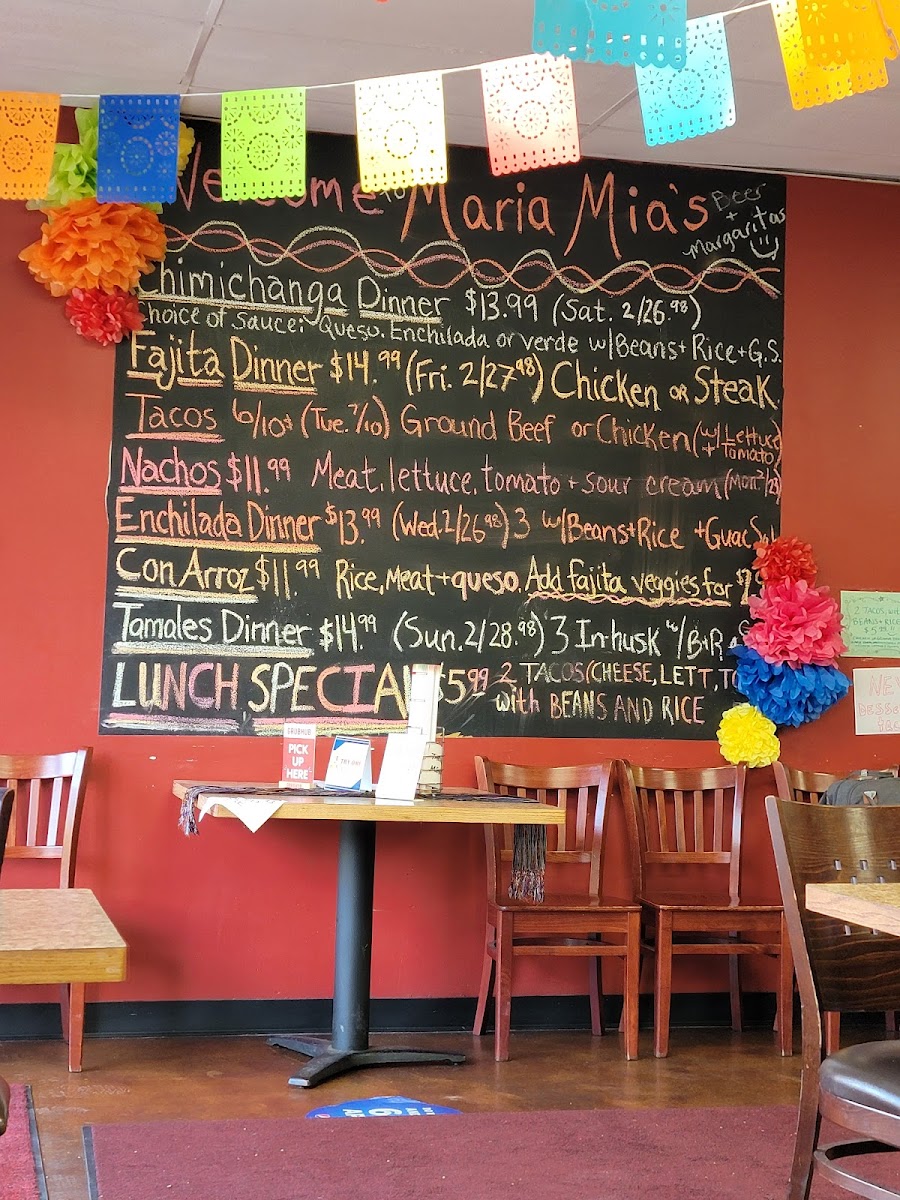 Welcome to Maria Mia's
Beer
+
Margaritas
Chimichanga Dinner $13.99 (Sat. 2/26.98)
Choice of Sauce: Queso, Enchilada or verde w/Beans+Rice+G.S.
Fajita Dinner $14.99 (Fri. 2/27.98) Chicken OR Steak
Tacos 6/10s (Tue. 7/10) Ground Beef or Chicken (w/ Lettuce + Tomato)
Nachos $11.99 Meat, lettuce, tomato + sour cream (Mon 2/
Enchilada Dinner $13.99 (Wed. 2/26.98) 3 w/Beans+Rice +Guac
Con Arroz $11.99 Rice, Meat + queso. Add fajita veggies for
Tamales Dinner $14.99 (Sun. 2/28.98) 3 In-husk w/B+R
LUNCH SPECIAL $5.99 2 TACOS (CHEESE, LETT,
with BEANS AND RICE
2 TACOS,
BEANS + RICE
$5.99
GRUBHUB
PICK
UP
HERE
6